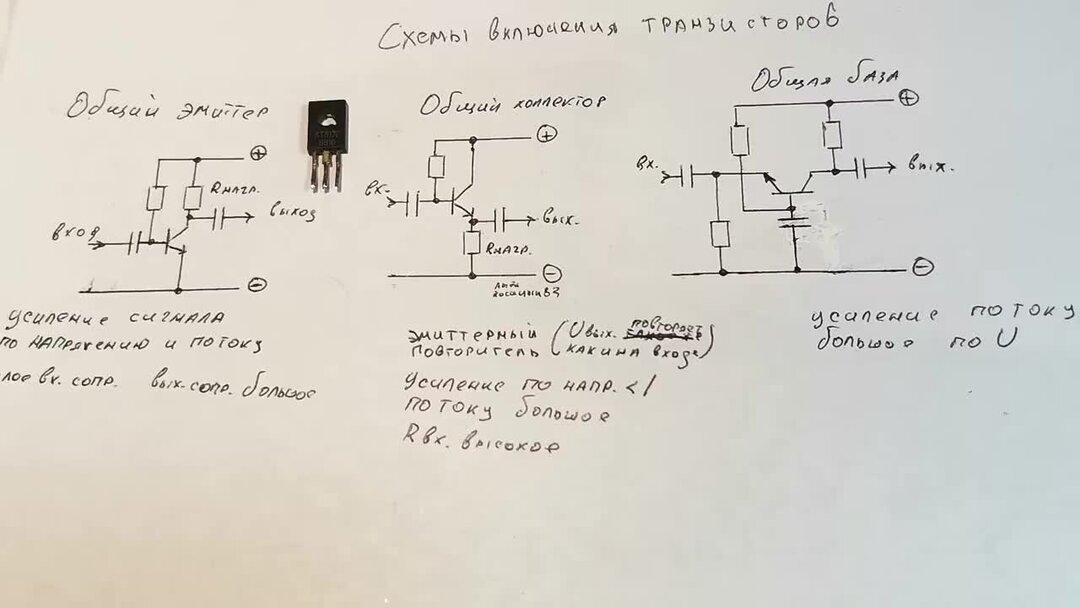 Схемы включения транзисторов
Общий эмиттер
Rнагр.
вход
выход
усиление сигнала
по напряжению и по току
лое вх. сопр. вых. сопр. большое
Общий коллектор
вх.
вых.
Rнагр.
эмиттерный
повторитель
(Uвых. повторяет
как и на входе)
усиление по напр. <1
по току большое
Rвх. высокое
Общая база
вх.
вых.
усиление по току
большое по U